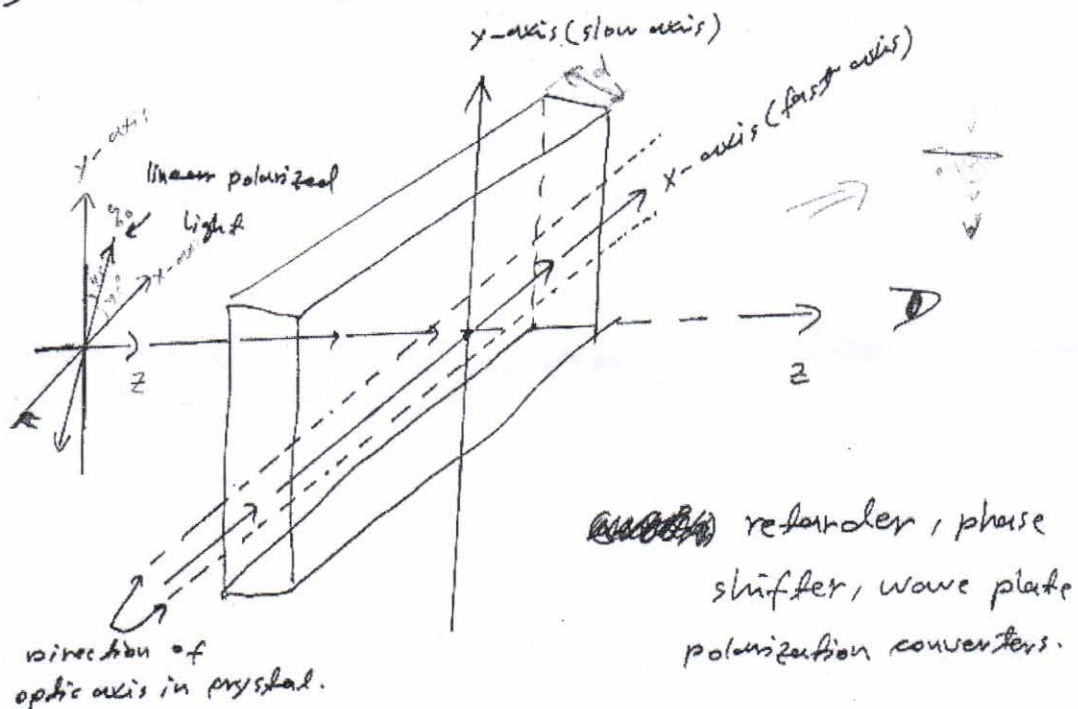 y-axis (slow axis)
d
x-axis (fast axis)
y-axis
linear polarized
light
x-axis
z
z
retarder, phase
shifter, wave plate
polarization converters.
Direction of
optic axis in crystal.